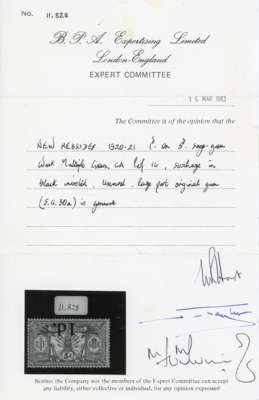 No. 11.828
B. P. A. Expertising Limited
London-England
EXPERT COMMITTEE
16 MAR 1983
The Committee is of the opinion that the
NEW HEBRIDES 1920-21 1. on 5. sage-green
Wmk Multiple Crown CA Perf 14, surcharge in
black omitted, Unused, large part original gum
(S.G. 30a) is genuine
11.828
Neither the Company nor the members of the Expert Committee can accept
any liability, either collective or individual, for any opinion expressed